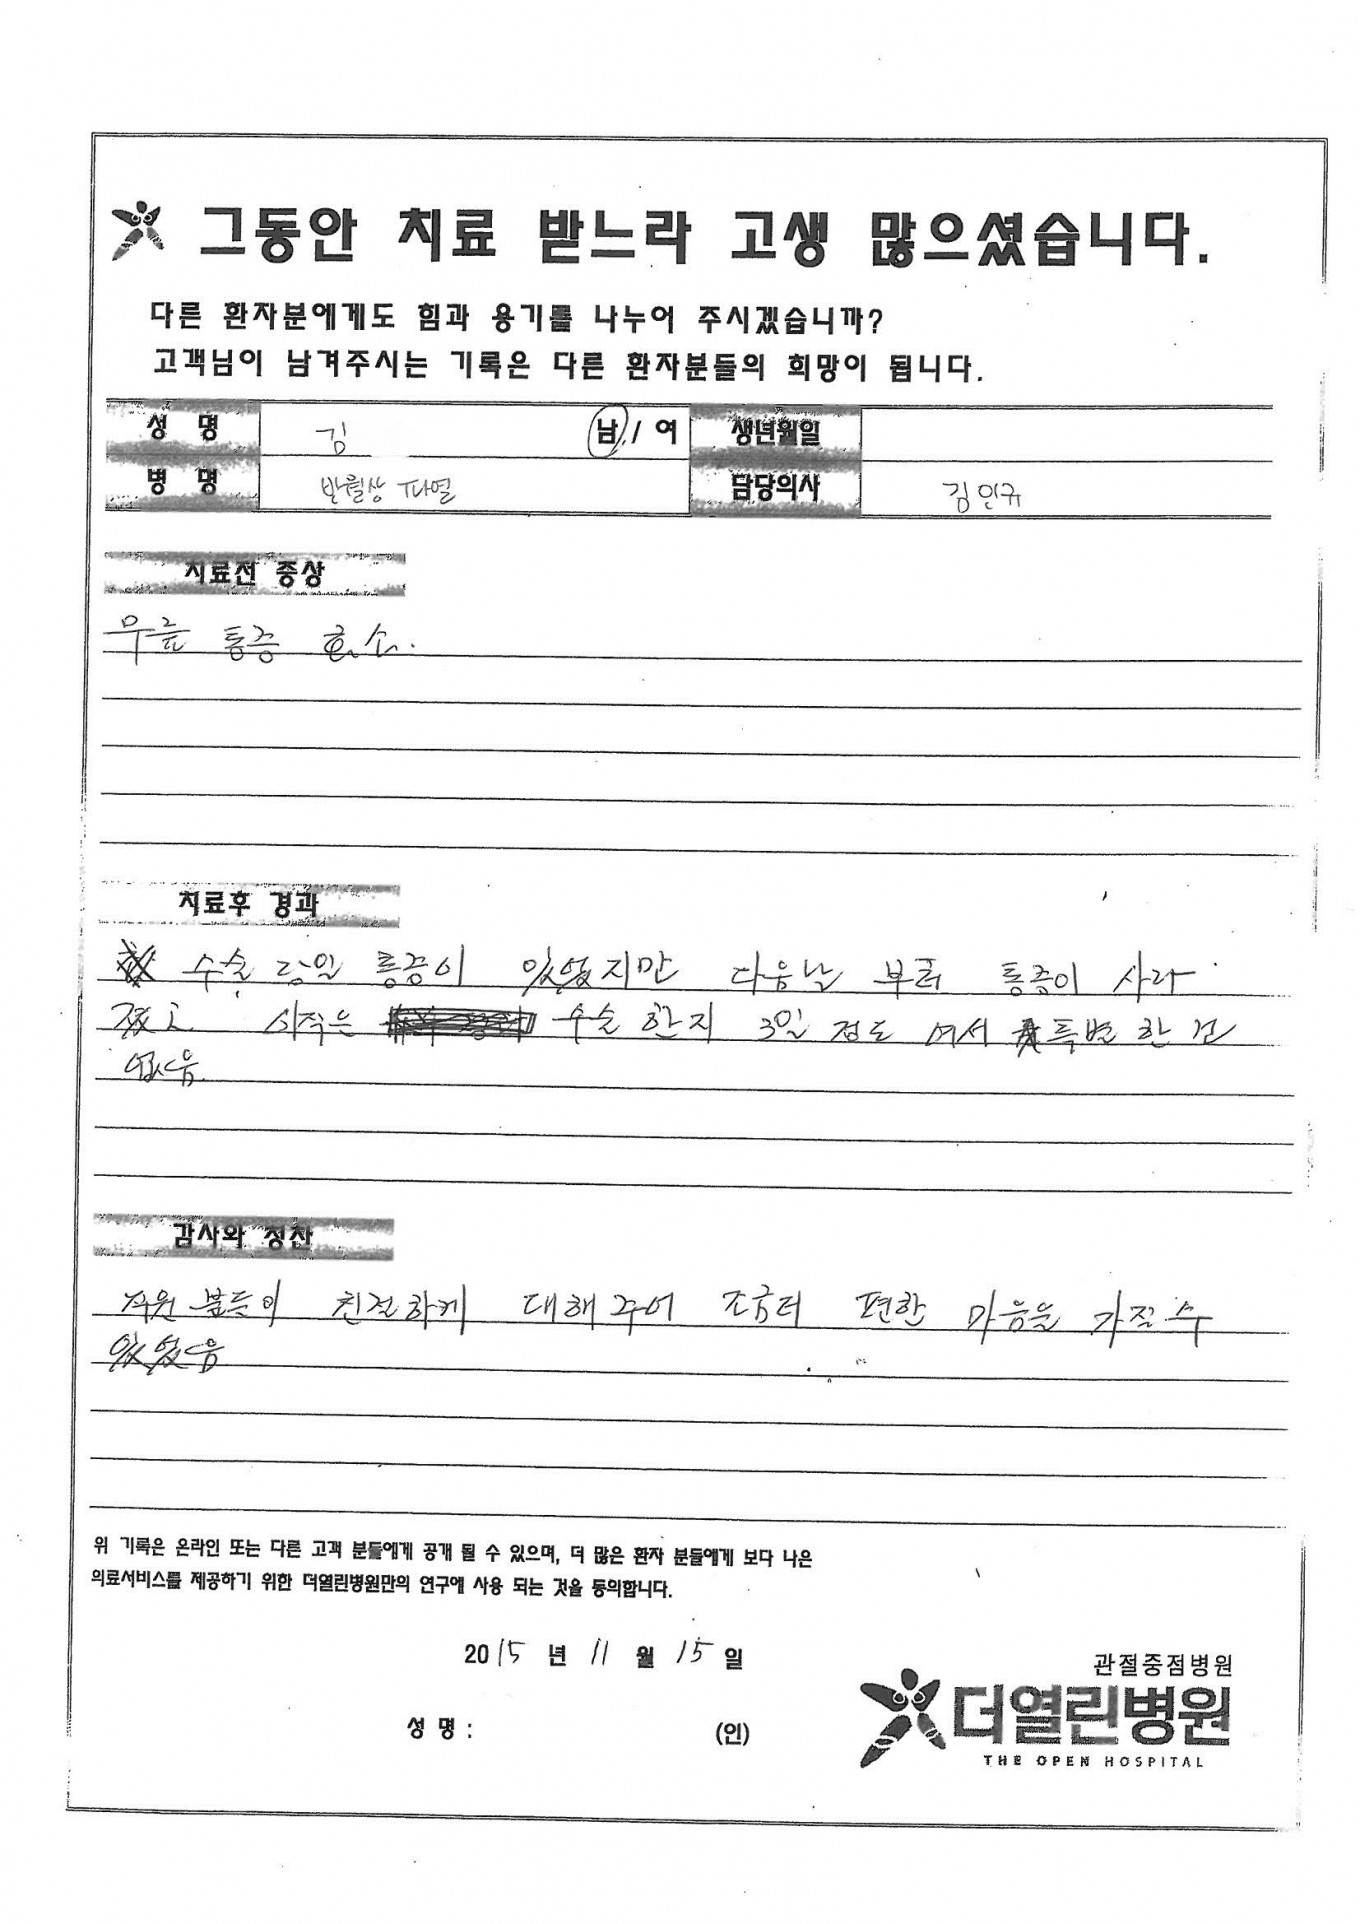 그동안 치료 받느라 고생 많으셨습니다.
다른 환자분에게도 힘과 용기를 나누어 주시겠습니까?
고객님이 남겨주시는 기록은 다른 환자분들의 희망이 됩니다.
성 명 김 남 / 여 생년월일
병 명 반월상 파열 담당의사 김인규
치료전 증상
무릎 통증 호소.
치료후 경과
수술 당일 통증이 있었지만 다음날 부터 통증이 사라
졌고 시작은 수술 한지 3일 정도 여서 특별한 건
없음.
감사와 칭찬
직원 분들이 친절하게 대해 주어 조금더 편한 마음을 가질 수
있었음
위 기록은 온라인 또는 다른 고객 분들에게 공개 될 수 있으며, 더 많은 환자 분들에게 보다 나은
의료서비스를 제공하기 위한 더열린병원만의 연구에 사용 되는 것을 동의합니다.
2015 년 11 월 15 일
관절중점병원
성 명 : (인) 더열린병원
THE OPEN HOSPITAL